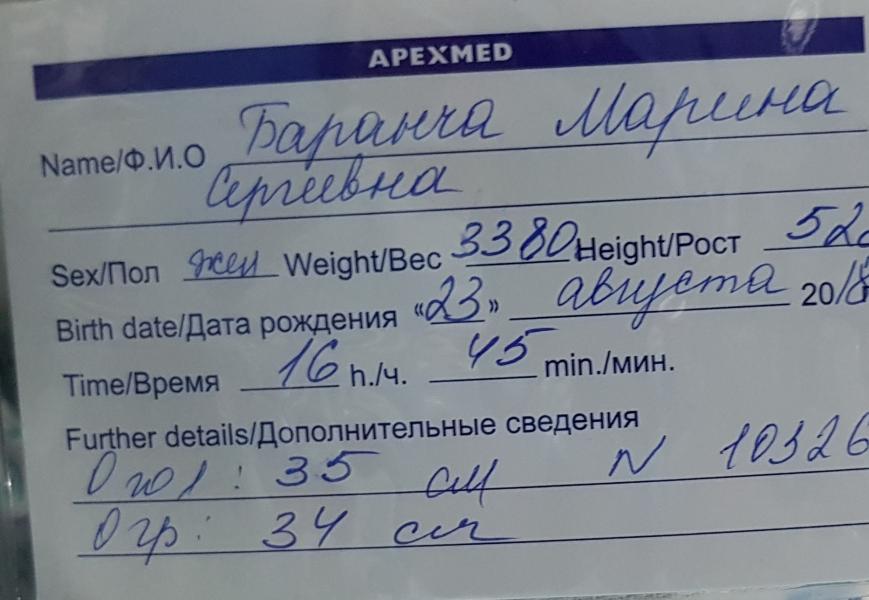 APEXMED
Name/Ф.И.О Баранча Марина
Сергеевна
Sex/Пол жен Weight/Вес 3380 Height/Рост 52
Birth date/Дата рождения «23» августа 2018
Time/Время 16 h./ч. 45 min./мин.
Further details/Дополнительные сведения
О гол: 35 см N 10326
О гр: 34 см